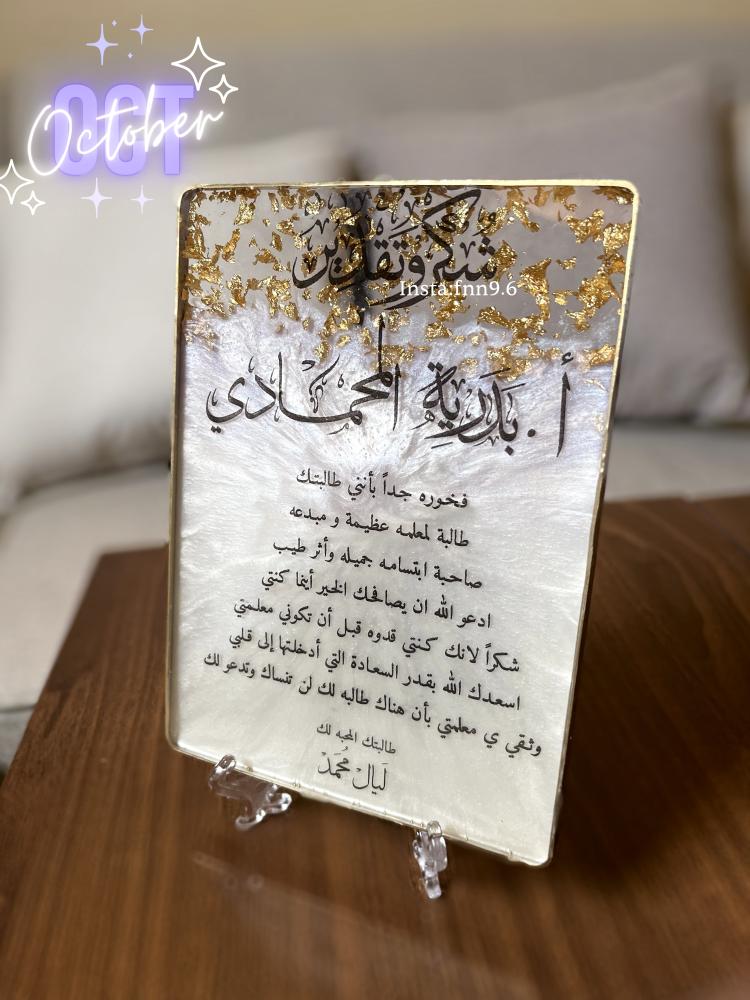 OCT
October
شُكر وَتَقدْير
Insta:fnn9.6
أ. بَدَرية المحمادي
فخوره جداً بأنني طالبتك
طالبة لمعلمه عظيمة و مبدعه
صاحبة ابتسامه جميله وأثر طيب
ادعو الله ان يصافحك الخير أينما كنتي
شكراً لانك كنتي قدوه قبل أن تكوني معلمتي
اسعدك الله بقدر السعادة التي أدخلتها إلى قلبي
وثقي ي معلمتي بأن هناك طالبه لك لن تنساك وتدعو لك
طالبتك المحبه لك
ليال مُحمد